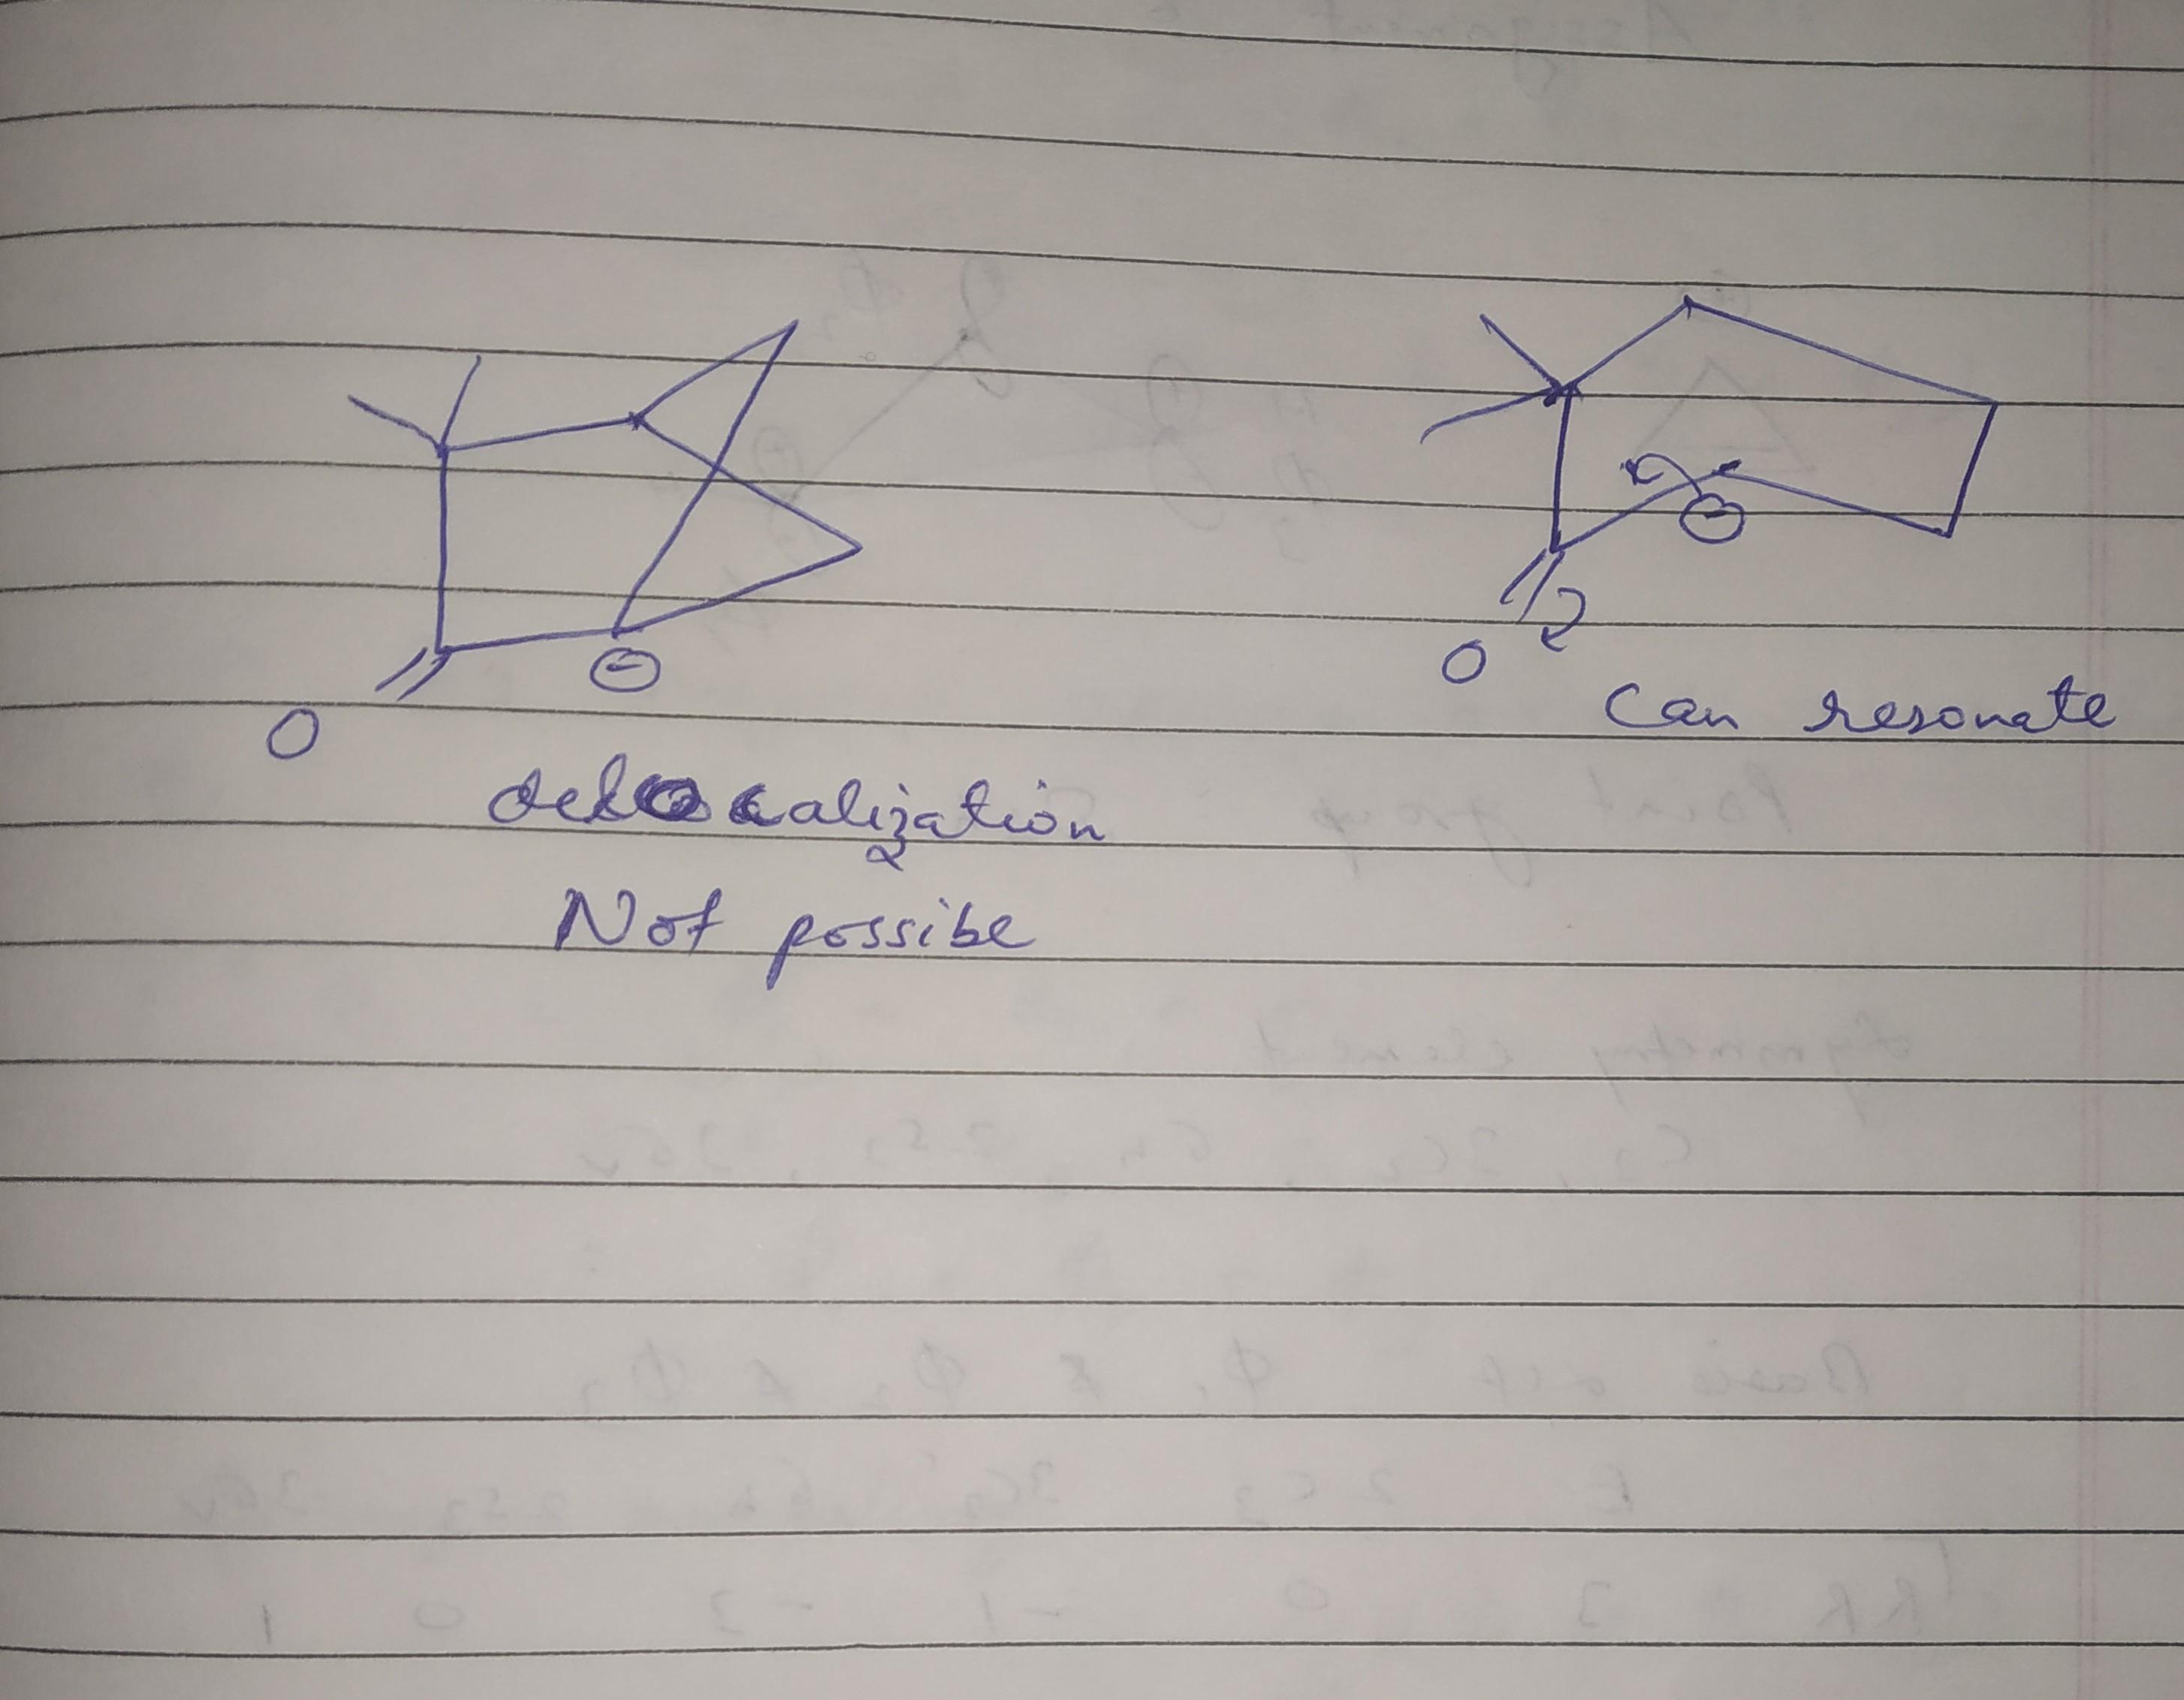 O
O
can resonate
delocalization
Not possibe